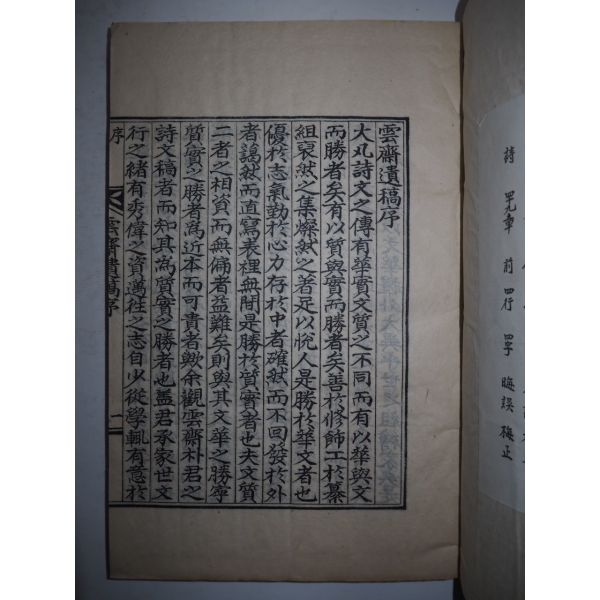 詩 四九章 前 四行 四字 晦誤 梅正
雲齋遺稿序
大凡詩文之傳有華實文質之不同而有以華與文
而勝者矣有以質與實而勝者矣善於修師工於纂
組裒然之集燦然之著足以悅人是勝於華文者也
優於志氣勤於心力存於中者確然而不回發於外
者謁然而直寫表裡無間是勝於質實者也夫文質
二者之相資而無偏者益難矣則與其文華之勝寧
質實之勝者爲近本而可貴者歟余觀雲齋朴君之
詩文稿者而知其爲質實之勝者也盖君承家世文
行之緖有秀偉之資邁往之志自少從學輒有意於
序
雲齋遺稿序
一